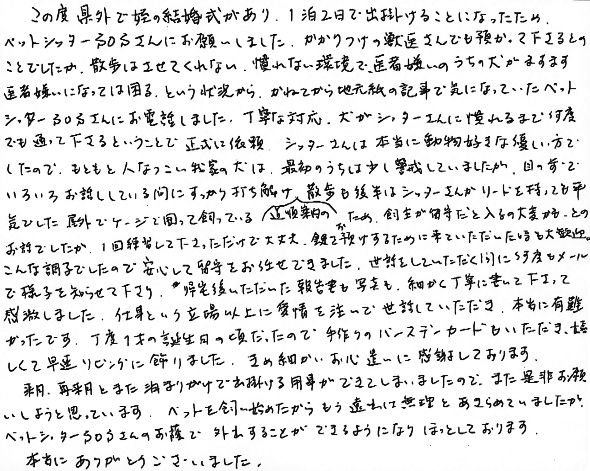 この度 県外で姪の結婚式があり、1泊2日で出掛けることになったため、
ペットシッターるのるさんにお願いしました。かかりつけの獣医さんでも預かって下さるとの
ことでしたが、散歩はさせてくれない、慣れない環境で医者嫌いのうちの犬がますます
医者嫌いになっては困る、という状況から、かねてから地元紙の記事で気になっていたペット
シッターるのるさんにお電話しました。丁寧な対応、犬がシッターさんに慣れるまで何度
でも通って下さるということで 正式に依頼。シッターさんは本当に動物好きな優しい方で
したので、もともと人なつこい我家の犬は、最初のうちは少し警戒していましたが、目の前で
いろいろお話ししている間にすっかり打ち解け、散歩も後半はシッターさんがリードを持っても平
気でした。屋外でケージで囲って飼っている 道順案内の ため、飼主が留守だと入るの大変かも、との
お話でしたが、1回練習して下さっただけで大丈夫。鍵を預けするために来ていただいた時も大歓迎。
こんな調子でしたので安心して留守をお任せできました。世話をしていただく間に何度もメール
で様子を知らせて下さり、帰宅後いただいた報告書も写真も、細かく丁寧に書いて下さって
感激しました。仕事という立場以上に愛情を注いで世話していただき、本当に有難
かったです。丁度1才の誕生日の頃だったので 手作りのバースデーカードもいただき、嬉
しくて早速リビングに飾りました。きめ細かいお心遣いに感謝しております。
来月、再来月とまた泊まりがけで出掛ける用事ができてしまいましたので、また是非お願
いしようと思っています。ペットを飼い始めたからもう遠出は無理とあきらめていましたが、
ペットシッターるのるさんのお蔭で 外出することができるようになり ほっとしております。
本当に ありがとうございました。